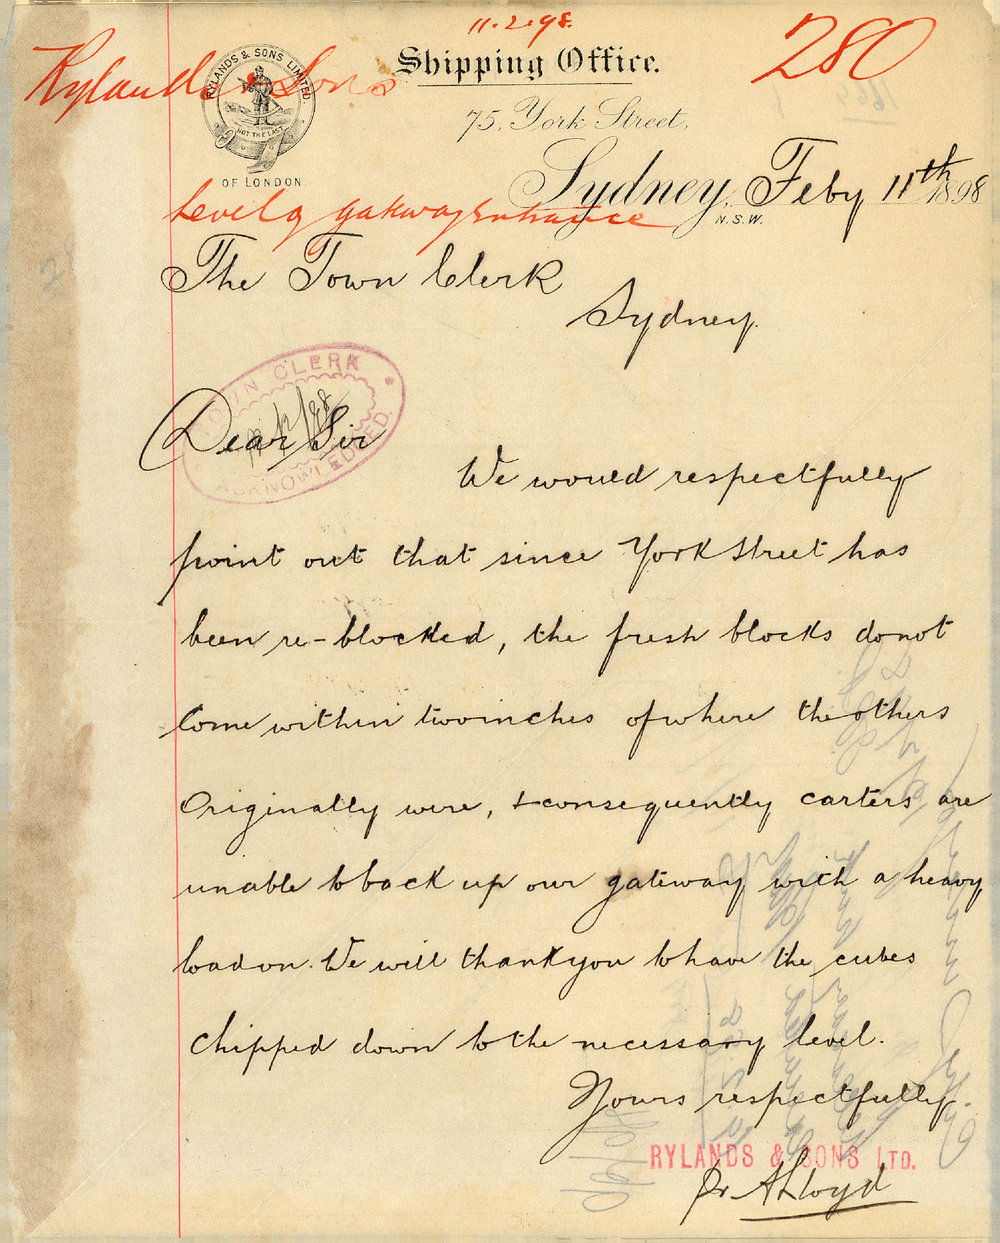 11.2.98.
Rylands & Sons
280
RYLANDS & SONS LIMITED.
NOT THE LAST
OF LONDON.
Shipping Office.
75, York Street,
Sydney, Feby 11th 1898
N.S.W.
Level of gateway entrance
The Town Clerk
Sydney.
TOWN CLERK
ACKNOWLEDGED.
Dear Sir
We would respectfully
point out that since York Street has
been re-blocked, the fresh blocks do not
come within two inches of where the others
originally were, & consequently carters are
unable to back up our gateway with a heavy
load on. We will thank you to have the cubes
chipped down to the necessary level.
Yours respectfully
RYLANDS & SONS LTD.
pr A Lloyd